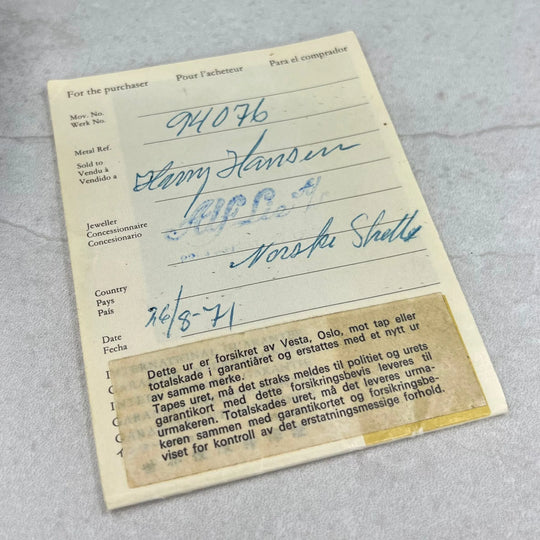 For the purchaser Pour l'acheteur Para el comprador
Mov. No.
Werk No.
94076
Metal Ref.
Sold to
Vendu à
Vendido a
Harry Hansen
Jeweller
Concessionnaire
Concesionario
Alf Lie A/s
Norske Shell
Country
Pays
País
26/8-71
Date
Fecha
Dette ur er forsikret av Vesta, Oslo, mot tap eller
totalskade i garantiåret og erstattes med et nytt ur
av samme merke.
Tapes uret, må det straks meldes til politiet og urets
garantikort med dette forsikringsbevis leveres til
urmakeren. Totalskades uret, må det leveres urma-
keren sammen med garantikortet og forsikringsbe-
viset for kontroll av det erstatningsmessige forhold.